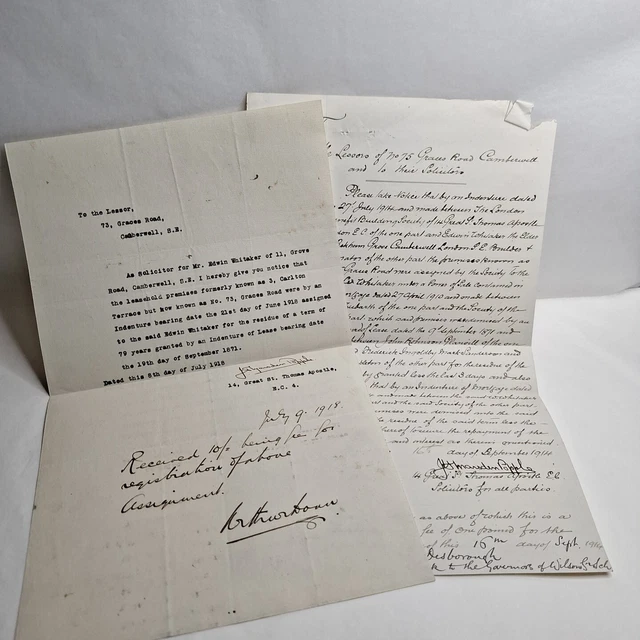 To the Lessor,
73, Graces Road,
Camberwell, S.E.
As Solicitor for Mr. Edwin Whitaker of 11, Grove
Road, Camberwell, S.E. I hereby give you notice that
the leasehold premises formerly known as 3, Carlton
Terrace but now known as No. 73, Graces Road were by an
Indenture bearing date the 21st day of June 1918 assigned
to the said Edwin Whitaker for the residue of a term of
79 years granted by an Indenture of Lease bearing date
the 19th day of September 1871.
Dated this 8th day of July 1918
14, Great St. Thomas Apostle,
E.C. 4.
July 9. 1918.
Received 10/- being fee for
registration of above
Assignment.
Lessors of No 75 Graces Road Camberwell
and to their Solicitors
Please take Notice that by an Indenture dated
27th July 1914 and made between The London
Building Society of 14 Great St Thomas Apostle
London E.C. of the one part and Edwin Whitaker the Elder
Grove Camberwell London S.E. Builder &
of the other part the premises known as
Graces Road were assigned by the Society to the
Whitaker under a Power of Sale contained in
dated 27 April 1910 and made between
of the one part and the Society of the
part which said premises were demised by an
of Lease dated the 9th September 1871 and
between John Robinson of the one
Frederick and
of the other part for the residue of the
less the last 3 days and also
that by an Indenture of Mortgage dated
and made between the
and the said Society of the other
were demised unto the said
residue of the said term less the
thereof to secure the repayment of the
and interest as therein mentioned.
day of September 1914
14 Great St Thomas Apostle E.C.
Solicitors for all parties.
as above of which this is a
fee of One pound for the
this 16th day of Sept. 1914
Desborough
to the Governors of Wilson's